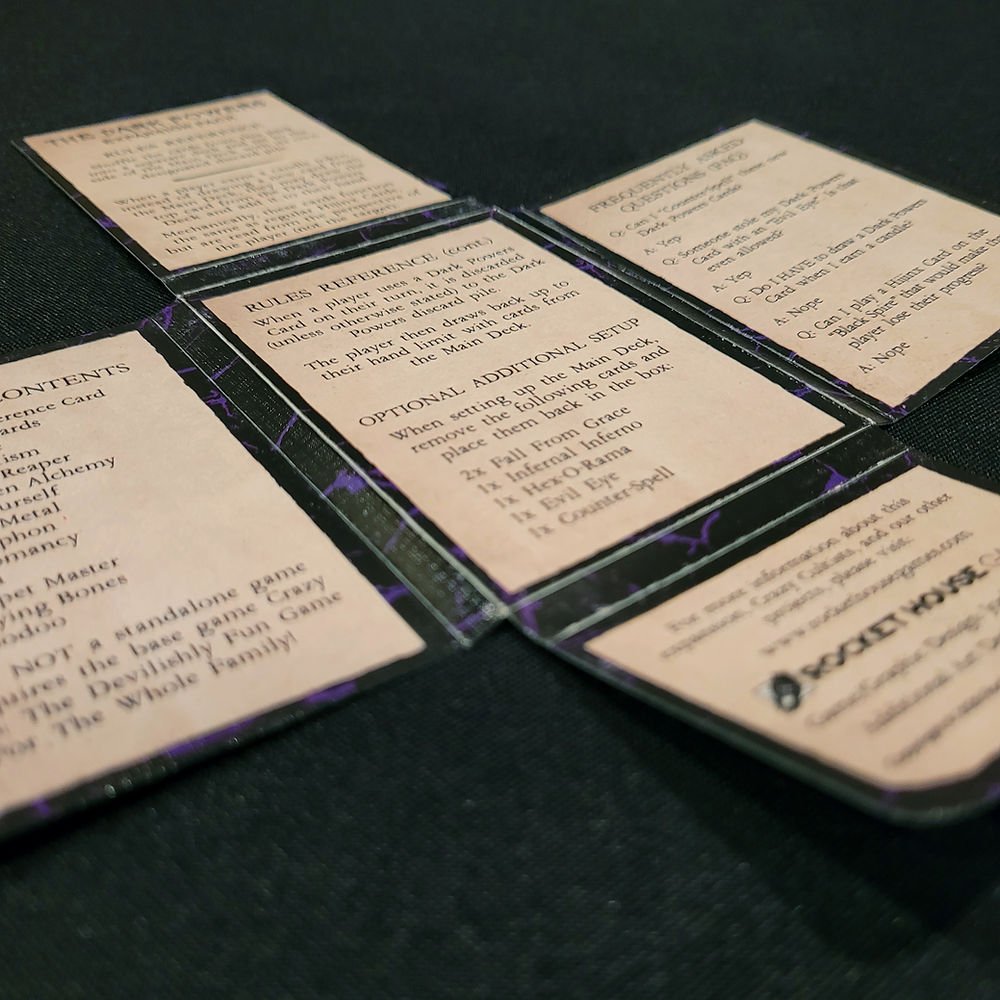 THE DARK POWERS
EXPANSION PACK
RULES REFERENCE
When a player
Mechanically, they function
the same as regular
RULES REFERENCE (cont.)
When a player uses a Dark Powers
Card on their turn, it is discarded
(unless otherwise stated) to the Dark
Powers discard pile.
The player then draws back up to
their hand limit with cards from
the Main Deck.
OPTIONAL ADDITIONAL SETUP
When setting up the Main Deck,
remove the following cards and
place them back in the box:
2x Fall From Grace
1x Infernal Inferno
1x Hex-O-Rama
1x Evil Eye
1x Counter-Spell
FREQUENTLY ASKED
QUESTIONS (FAQ)
Q: Can I "Counter-Spell" these new
Dark Powers Cards?
A: Yep
Q: Someone stole my Dark Powers
Card with an "Evil Eye" Is that
even allowed?
A: Yep
Q: Do I HAVE to draw a Dark Powers
Card when I earn a candle?
A: Nope
Q: Can I play a Hijinx Card on the
"Black Spire" that would make the
player lose their progress?
A: Nope
ONTENTS
erence Card
ards
ism
Reaper
en Alchemy
ourself
Metal
phon
omancy
per Master
ying Bones
oodoo
NOT a standalone game
quires the base game Crazy
The Devilishly Fun Game
For The Whole Family!
For more information about this
expansion, Crazy Cultists, and our other
projects, please visit:
www.rockethousegames.com
ROCKET HOUSE
Game/Graphic Design:
Additional Art